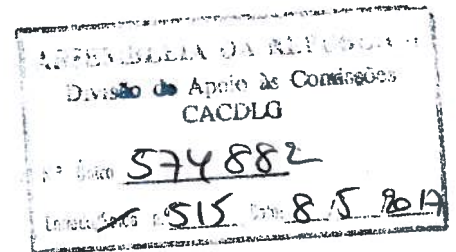 ASSEMBLEIA DA REPÚBLICA
Divisão de Apoio às Comissões
CACDLG
N.º Único 574882
Entrada/Saída n.º 515 Data 8/5/2017